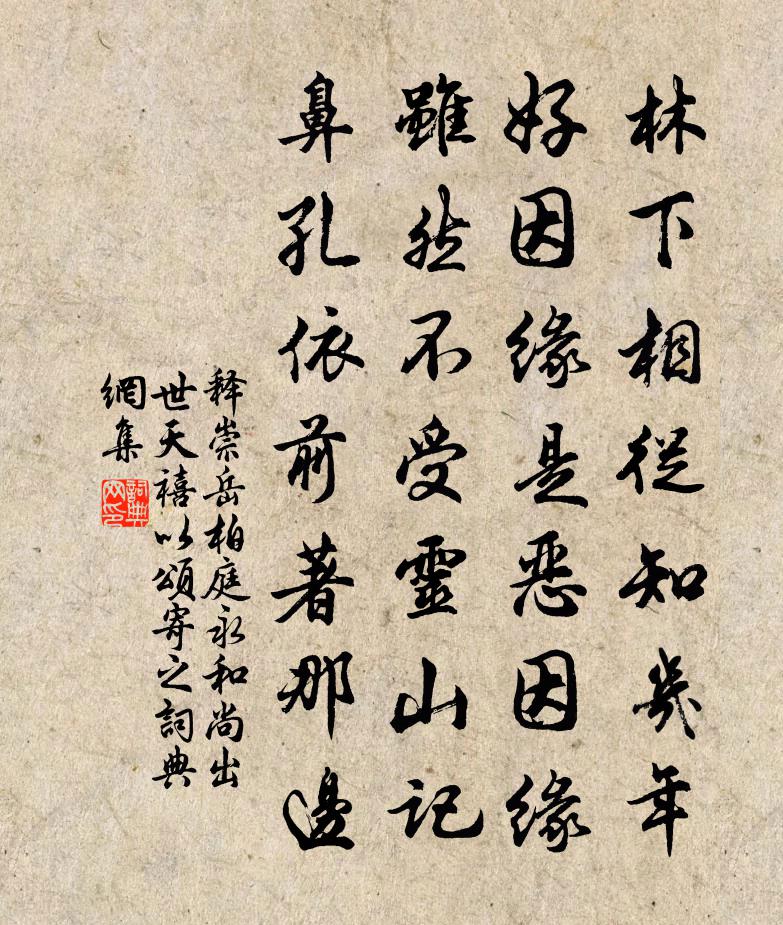 林下相從知幾年
好因緣是惡因緣
雖然不受靈山記
鼻孔依前著那邊
釋崇岳柏庭永和尚出
世天禧以頌寄之詞典
網集
詞典
网印